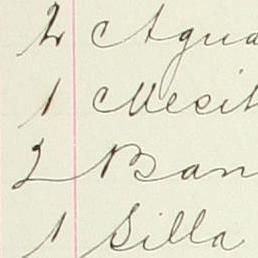 2 Agua
1 Mesit
2 Ban
1 Silla